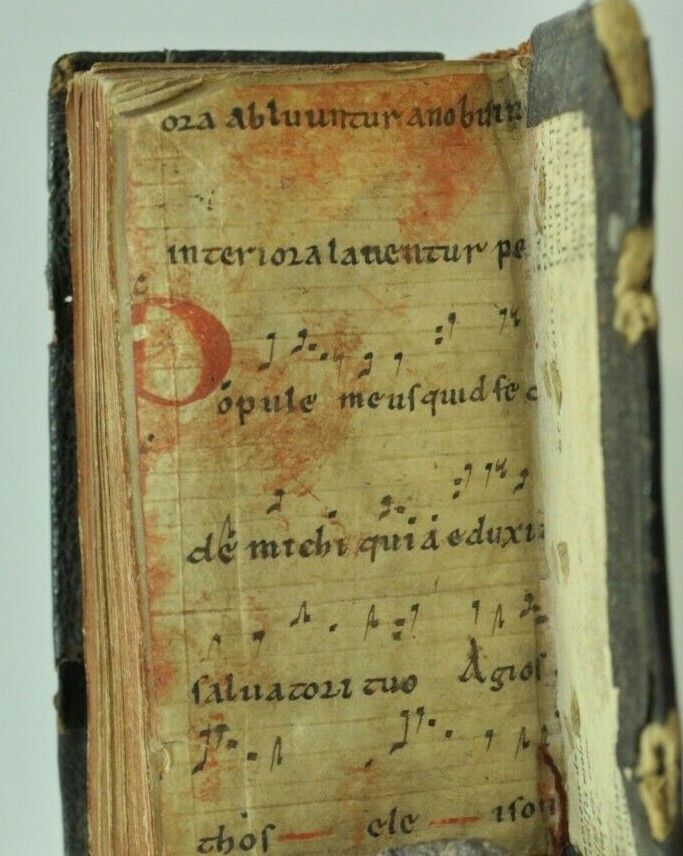 ora abluuntur anobiſ in
interiora lauentur pe
Popule meuſ quid fe c
de michi quia eduxi
ſaluatori tuo Agioſ
thoſ — ele — iſon